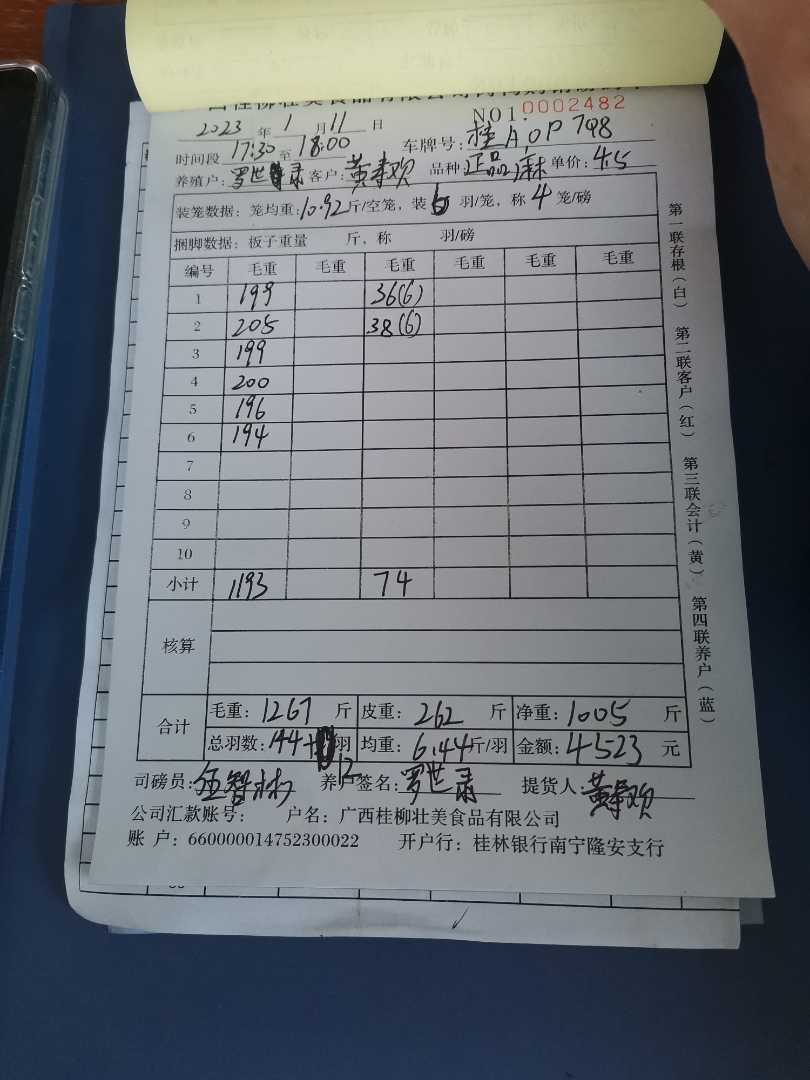 西桂柳壮美食品有限公司
NO1: 0002482
2023 年 1 月 11 日
时间段 17:30 至 18:00 车牌号: 桂A0P798
养殖户: 罗世录 客户: 黄寿欢 品种 正品麻 单价: 4.5
装笼数据: 笼均重: 10.92 斤/空笼, 装 6 羽/笼, 称 4 笼/磅
捆脚数据: 板子重量 斤, 称 羽/磅
编号 毛重 毛重 毛重 毛重 毛重 毛重
1 199 36(6)
2 205 38(6)
3 199
4 200
5 196
6 194
7
8
9
10
小计 1193 74
核算
合计 毛重: 1267 斤 皮重: 262 斤 净重: 1005 斤
总羽数: 144+12 羽 均重: 6.44 斤/羽 金额: 4523 元
司磅员: 养户签名: 罗世录 提货人: 黄寿欢
公司汇款账号: 户名: 广西桂柳壮美食品有限公司
账 户: 660000014752300022 开户行: 桂林银行南宁隆安支行
第一联存根(白) 第二联客户(红) 第三联会计(黄) 第四联养户(蓝)